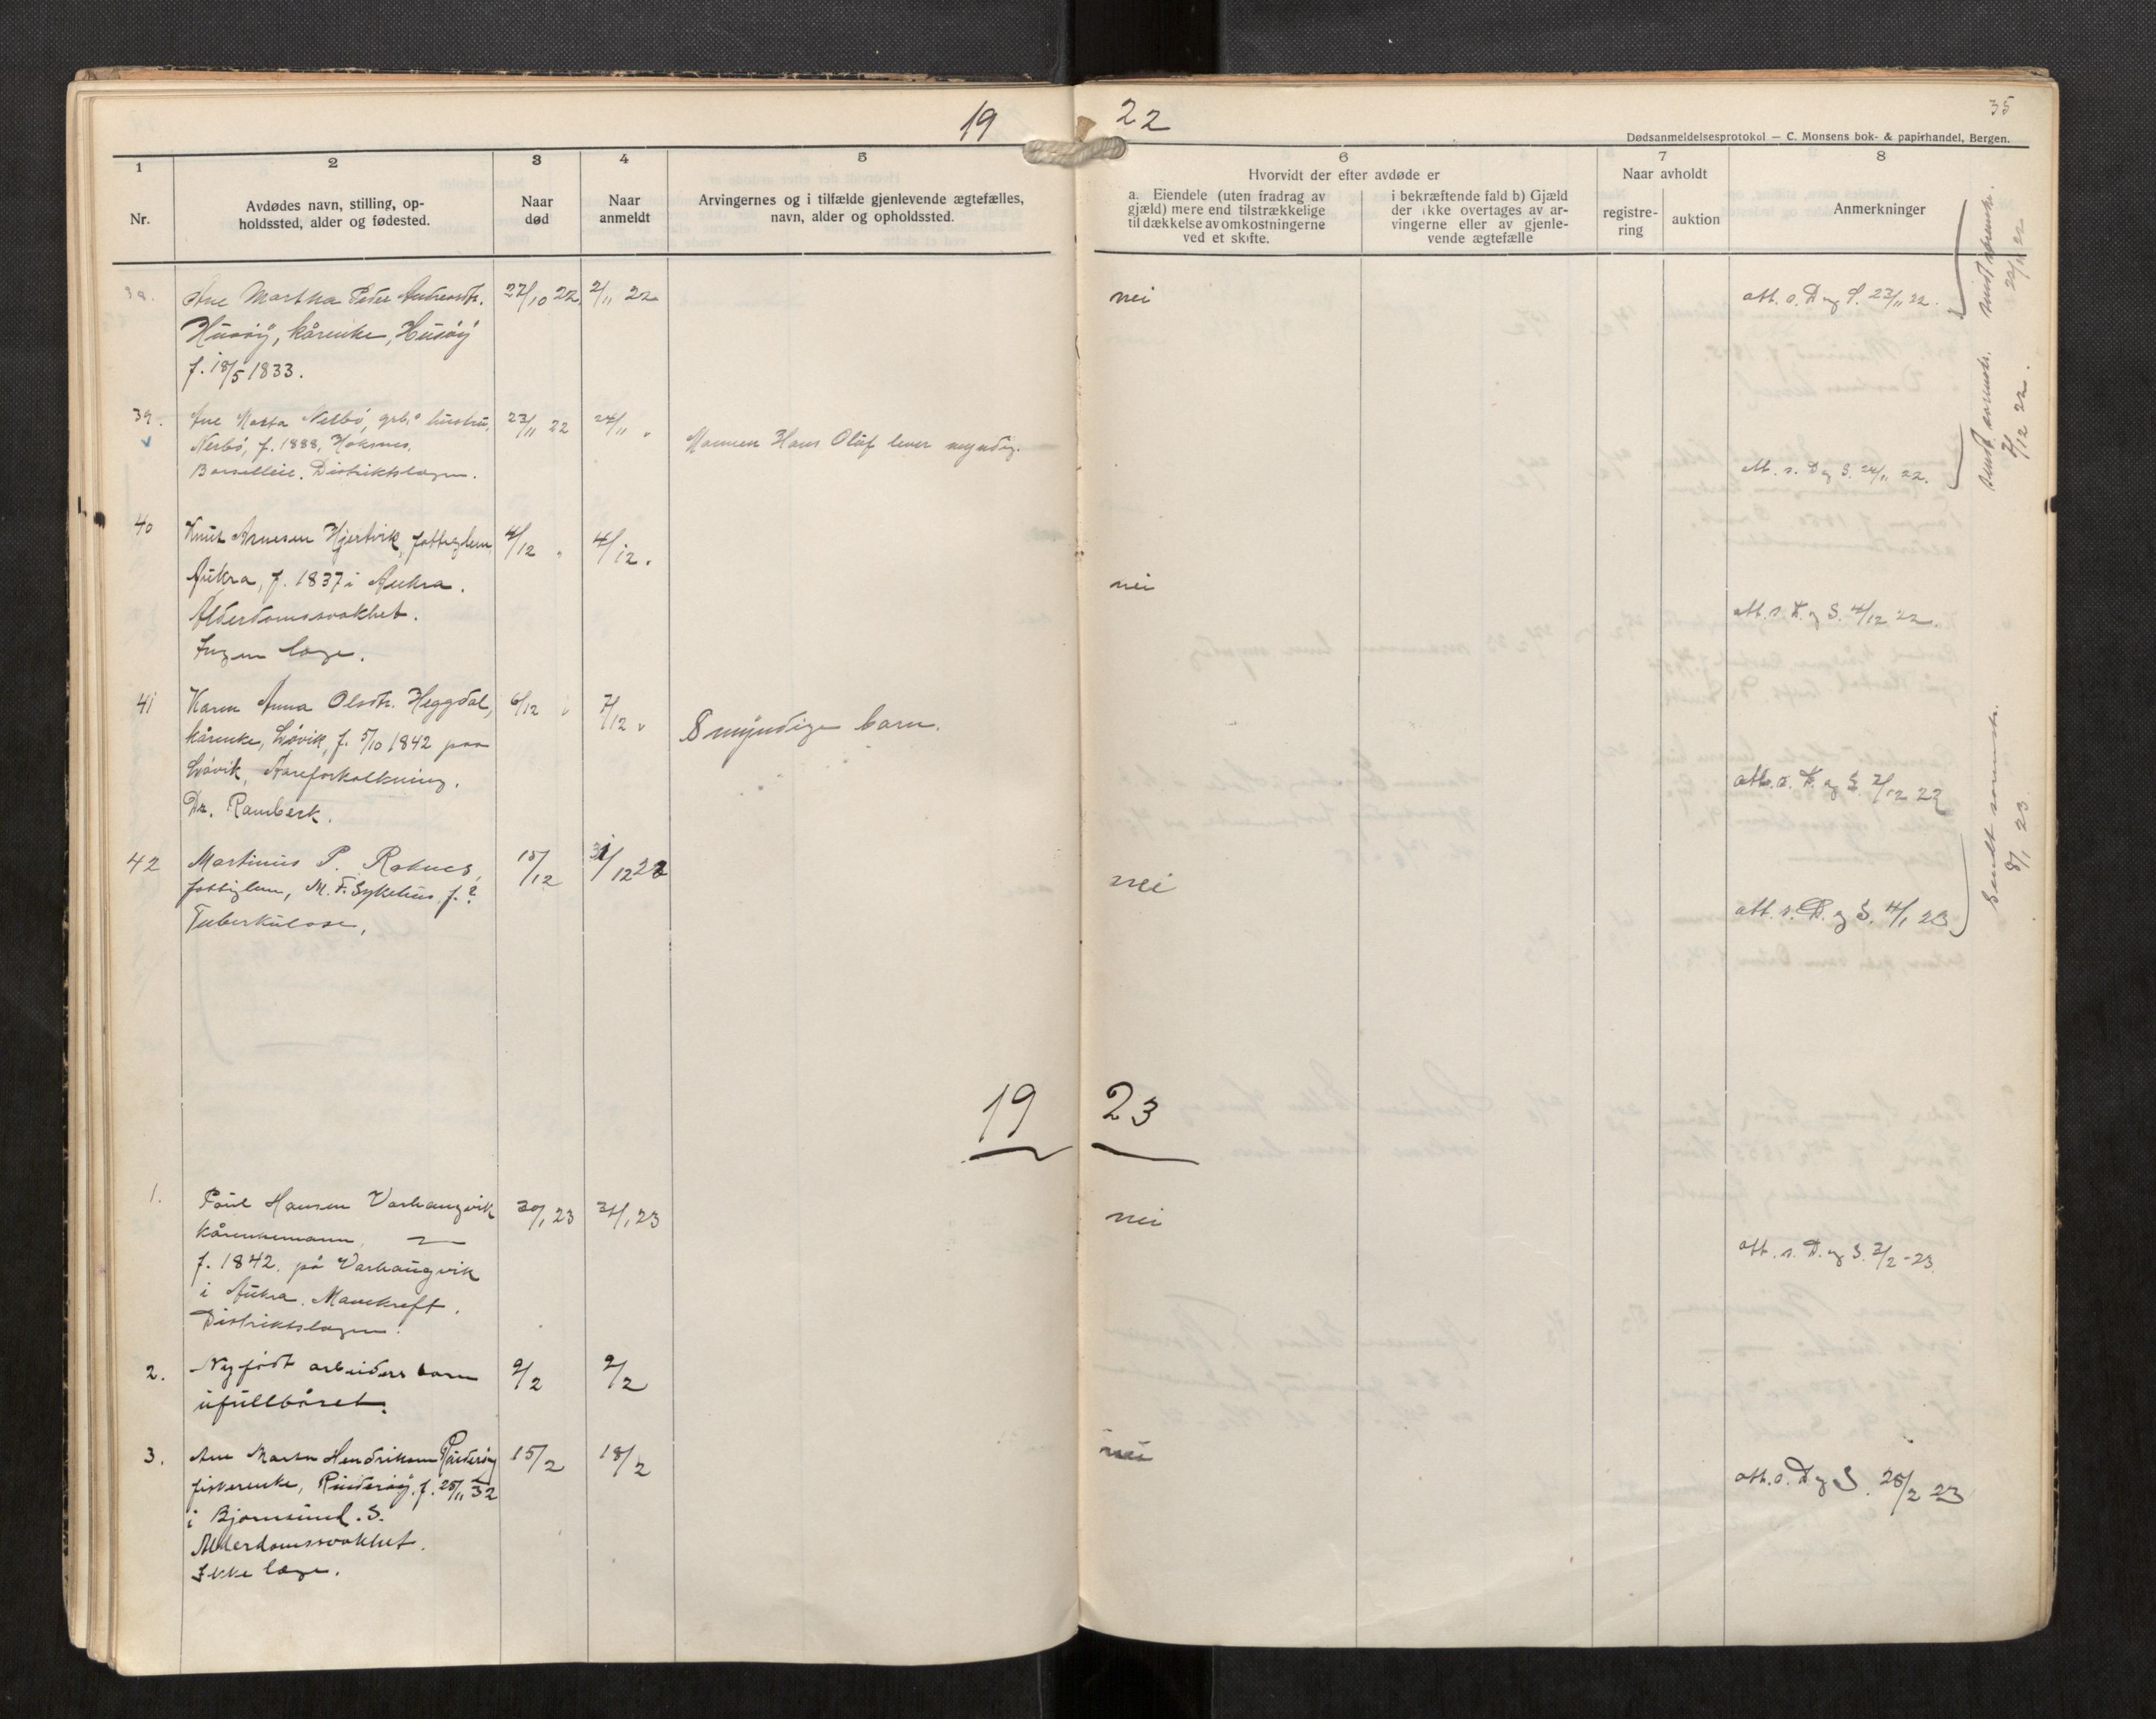 19 22
35
Dødsanmeldelsesprotokol — C. Monsens bok- & papirhandel, Bergen.
1
Nr.
2
Avdødes navn, stilling, op-
holdssted, alder og fødested.
3
Naar
død
4
Naar
anmeldt
5
Arvingernes og i tilfælde gjenlevende ægtefælles,
navn, alder og opholdssted.
6
Hvorvidt der efter avdøde er
a. Eiendele (uten fradrag av
gjæld) mere end tilstrækkelige
til dækkelse av omkostningerne
ved et skifte.
i bekræftende fald b) Gjæld
der ikke overtages av ar-
vingerne eller av gjenle-
vende ægtefælle
7
Naar avholdt
registre-
ring
auktion
8
Anmerkninger
38. Ane Martha Peder Andreasdtr. 27/10 22. 2/11 22 nei att. s. D og S. 23/11 22.
Husøy, kårenke, Husøy
f. 18/5 1833.
39. Ane Marta Nerbö, grbs hustru, 23/11 22 24/11 "
Nerbö, f. 1888, Hoksnes. Mannen Hans Oluf lever myndig.
Barselleie. Distriktslægen. att. s. D og S. 24/11 22.
40 Knut Arnesen Hjertvik, fattiglem 4/12 " 4/12 "
Aukra, f. 1837 i Aukra. nei
Alderdomssvakhet. att. s. D. og S. 4/12 22.
Ingen læge.
41 Karen Anna Olsdtr. Heggdal, 6/12 " 7/12 " 8 myndige barn.
kårenke, Løvik, f. 5/10 1842 paa
Løvik, Aareforkalkning. att. s. D. og S. 7/12 22
Dr. Ramberk.
42 Martinus P. Roknes, 15/12 31/12 22
fattiglem, M. F. Sykehus, f. ? nei
Tuberkulose, att. s. D. og S. 4/1 23
Sendt sorenskr.
22/11 22
Sendt sorenskr.
7/12 22.
Sendt sorenskr.
8/1 23
19 23
1. Paul Hansen Varhaugvik 30/1 23 31/1 23 nei
kårenkemann,
f. 1842. på Varhaugvik att. s. D. og S. 2/2 - 23.
i Aukra. Mavekreft.
Distriktslægen.
2. Nyfödt arbeiders barn 9/2 9/2
ufullbåret.
3. Ane Marta Hendriksen Rinderøy 15/2 18/2 nei
fiskerenke, Rinderøy. f. 25/11 32 att. s. D og S. 25/2 23
i Bjørnsund. S.
Alderdomssvakhet.
Ikke læge.